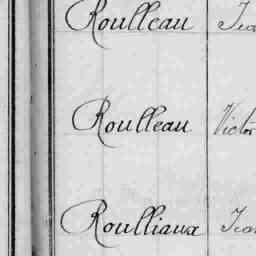 Roulleau
Roulleau Victor
Roulliaux